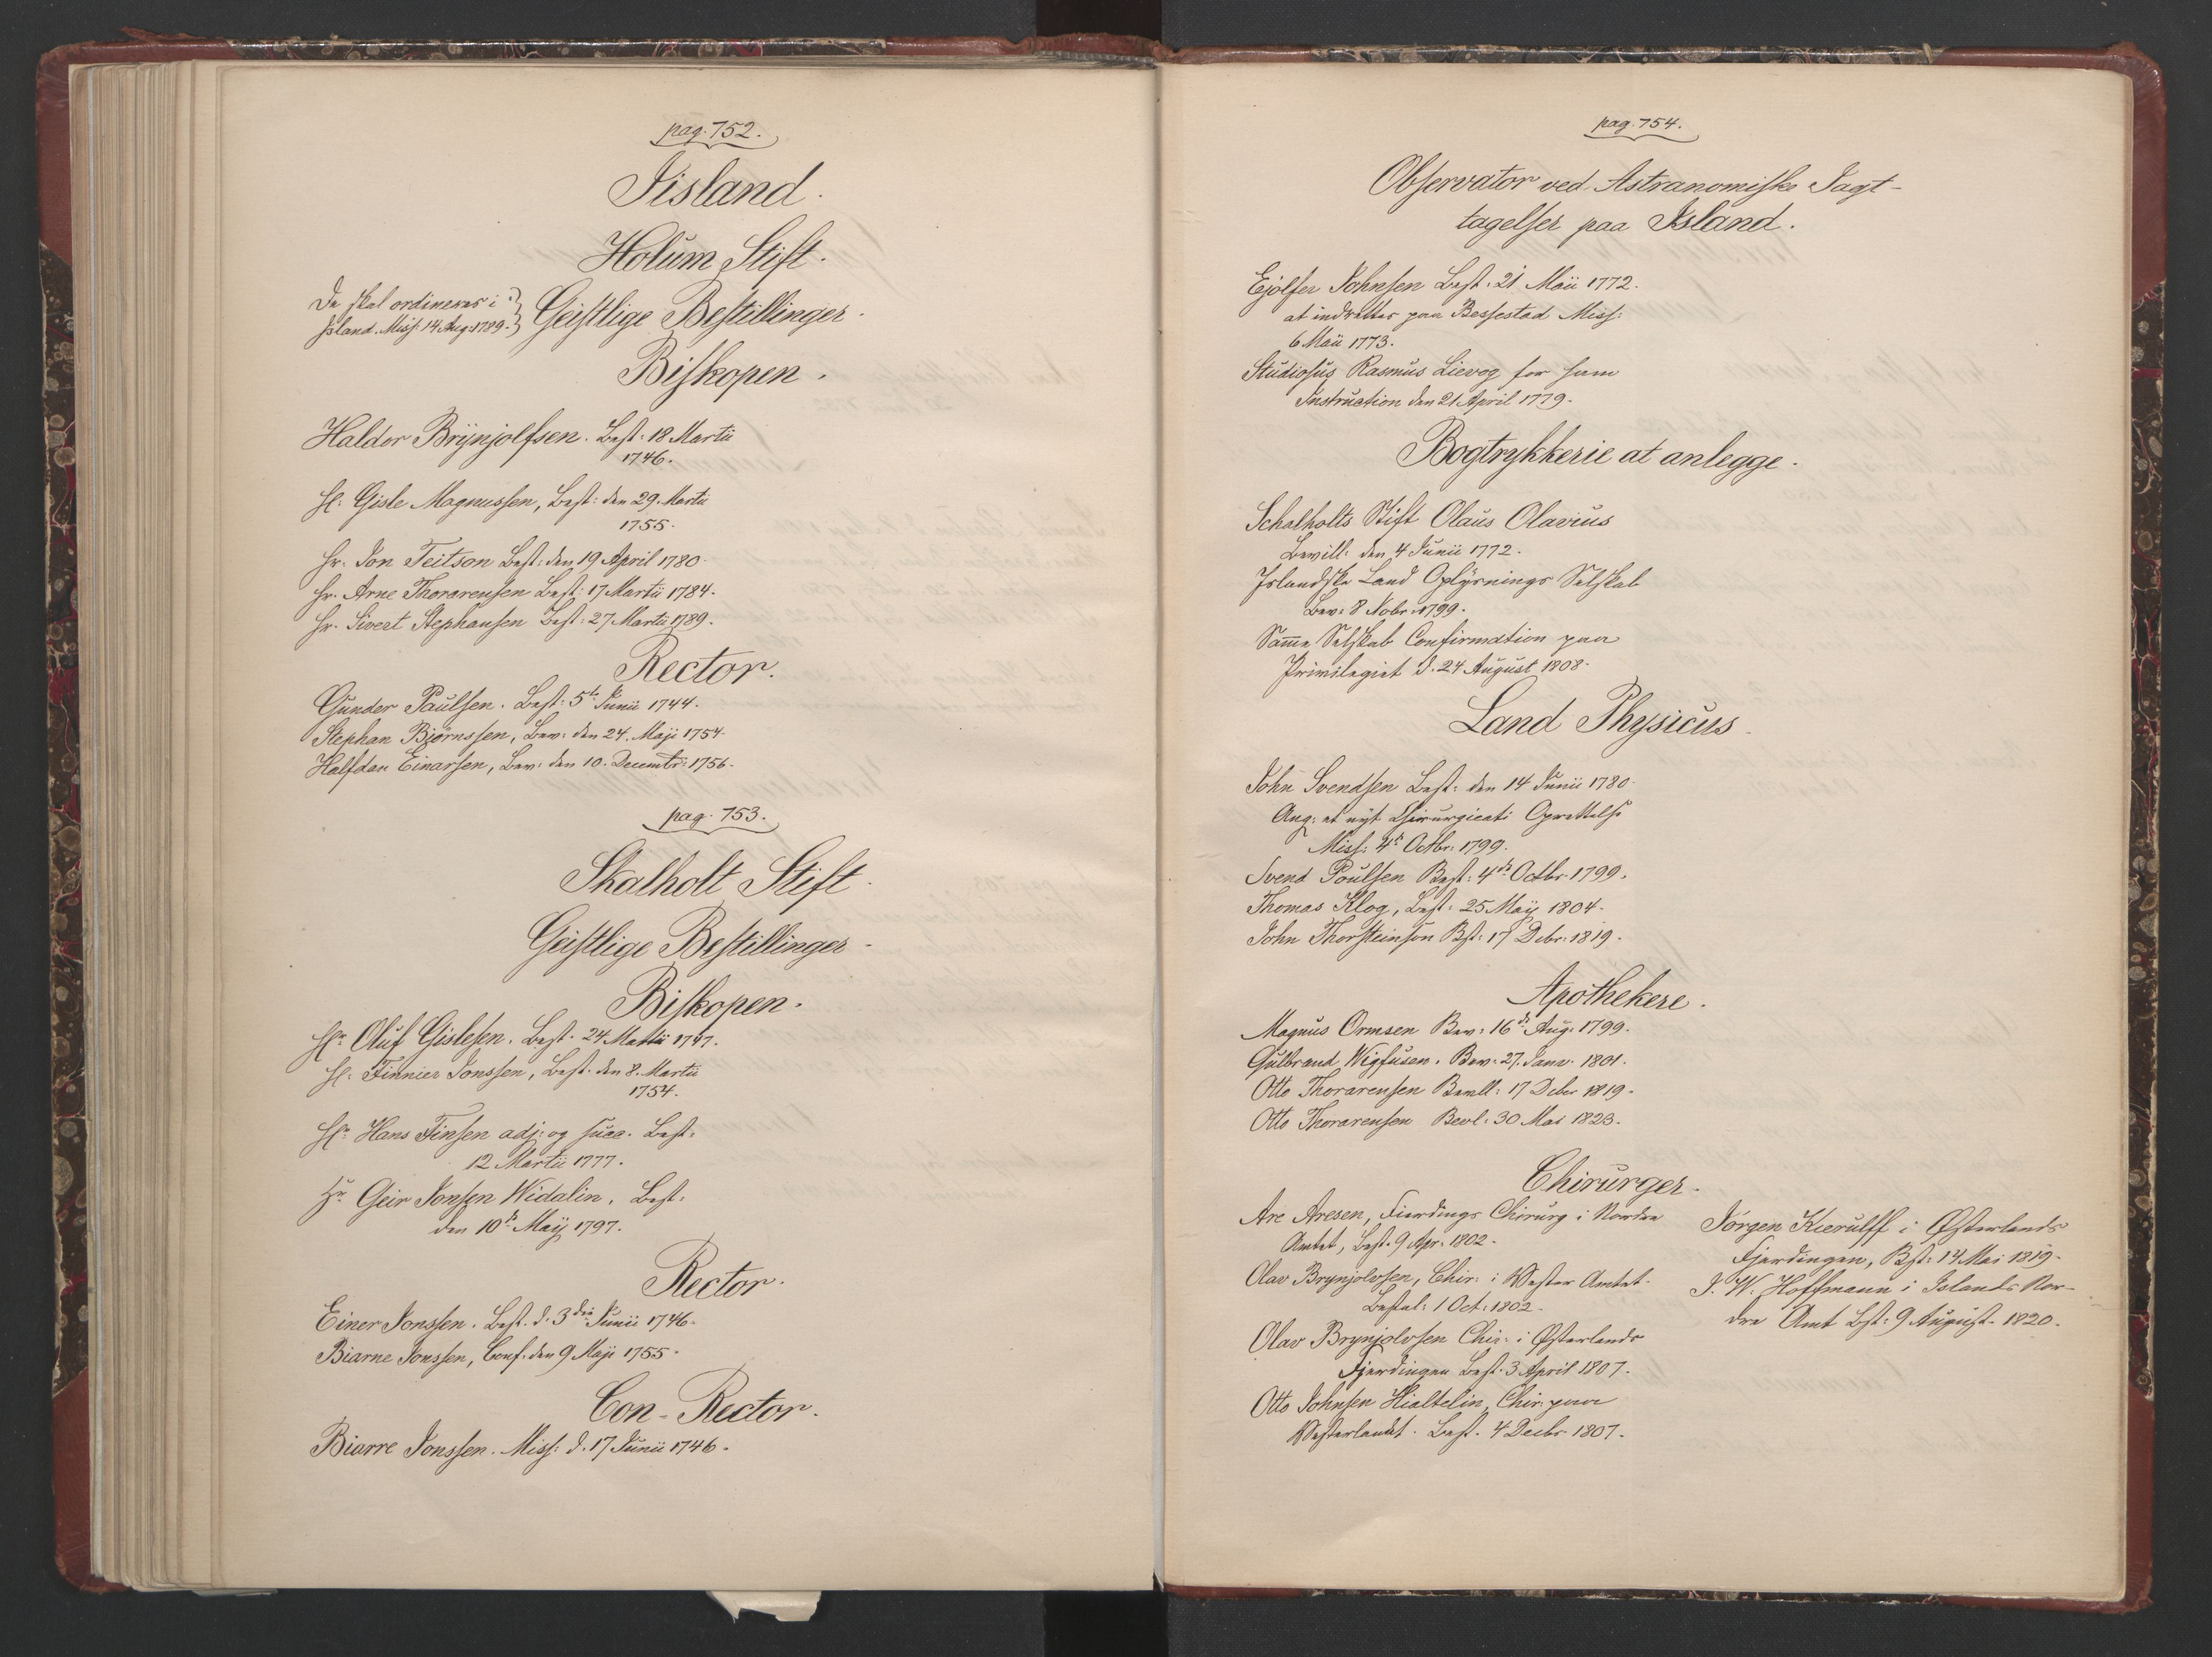 pag. 752.
Iisland.
Holum Stift.
De skal ordineres i
Island. Miss: 14 Aug: 1789.
Geistlige Bestillinger.
Biskopen.
Haldor Brÿnjolfsen. Best: 18 Martii
1746.
H: Gisle Magnussen, Best: den 29. Martii
1755.
Hr. Jon Teitson Best: den 19 April 1780.
Hr. Arne Thorarensen Best: 17 Martii 1784.
Hr. Sivert Stephansen Best: 27 Martii 1789.
Rector.
Gunder Paulsen. Best: 5te Junii 1744.
Stephan Biørnssen, Bev: den 24. Maji 1754.
Halfdan Einarsen, Bev: den 10. Decembr: 1756.
pag. 753.
Skalholt Stift.
Geistlige Bestillinger.
Biskopen.
Hr. Oluf Gislesen. Best. 24 Martii 1747.
H: Finnier Jonssen, Best. den 8. Martii
1754.
Hr. Hans Finsen adj: og succ. Best:
12 Martii 1777.
Hr. Geir Jonsen Widalin. Best:
den 10de Maÿ 1797.
Rector.
Einer Jonssen. Best. d. 3die Junii 1746.
Biarne Jonssen, Conf. den 9 Maji 1755.
Con-Rector.
Biarre Jonssen. Miss: d. 17 Junii 1746.
pag. 754.
Observator ved Astranomiske Jagt-
tagelser paa Island.
Ejolfer Johnsen Best: 21 Maii 1772.
at indrettes paa Bessestad Miss:
6 Maii 1773.
Studiosus Rasmus Lievog for ham
Instruction den 21 April 1779.
Bogtrykkerie at anlegge.
Schalholts Stift Olaus Olavius
Bevill: den 4 Junii 1772.
Islandske Land Oplysnings Selskab
Bev: 8 Nobr: 1799.
Samme Selskab Confirmation paa
Privilegiet d. 24 August 1808.
Land Physicus.
John Svendsen Best: den 14 Junii 1780.
Ang: et nyt Chirurgicati Oprettelse
Miss: 4de Octbr: 1799.
Svend Poulsen Best: 4de Octbr. 1799.
Thomas Klog, Best: 25 Maÿ 1804.
John Thorsteinson Bst: 17 Debr: 1819.
Apothekere.
Magnus Ormsen Bev: 16de Aug: 1799.
Gulbrand Wigfusen. Bev: 27. Janr. 1801.
Otto Thorarensen Bevll: 17 Debr 1819.
Otto Thorarensen Bevl: 30 Mai 1823.
Chirurger.
Are Aresen, Fierdings Chirurg i Nordre
Amtet, Best. 9 Apr. 1802.
Olav Brynjolvsen, Chir: i Wester Amtet.
Bestal: 1 Oct: 1802.
Olav Brynjolvsen Chir: i Østerlands
Fjerdingen Best: 3 April 1807.
Otto Johnsen Hialtelin, Chir: paa
Westerlandet. Best. 4 Decbr 1807.
Jørgen Kierulff i Østerlands
Fjerdingen, Bst: 14 Mai 1819.
J. W. Hoffmann i Islands Nor-
dre Amt Bst: 9 August 1820.